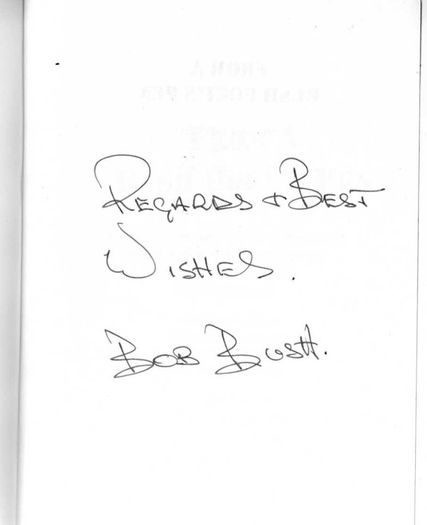 Regards & Best
Wishes.
Bob Bush.